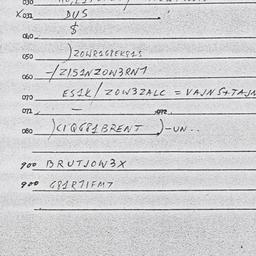 030
X 032 DUS
040 $
050 )ZOWR1G7EK81S
060 -/Z1S1NZOW3RN7
070 ES1K/ZOW3ZALC = VAJNS+TAJN
072 — 072
080 )CIQG81BRENT )-UN..
900 BRUTJOW3X
900 G81R71FM7